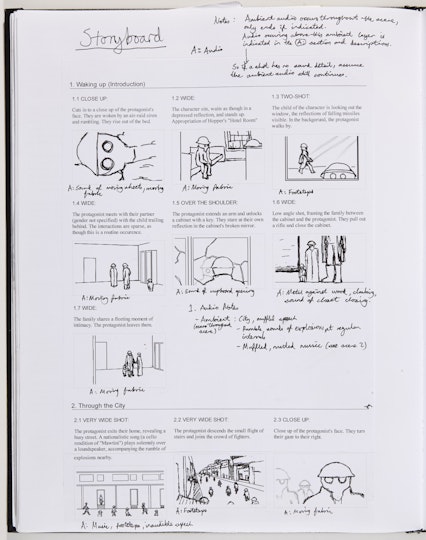 Storyboard
Notes: Ambient audio occurs throughout the scene,
only ends if indicated.
Audio occuring above this ambient layer is
indicated in its (A:) section and descriptions.
A = Audio
So if a shot has no sound detail, assume
the ambient audio still continues.
1. Waking up (Introduction)
1.1 CLOSE UP:
Cuts in to a close up of the protagonist's
face. They are woken by an air raid siren
and rumbling. They rise out of the bed.
A: Sound of moving wheels, moving
fabric
1.2 WIDE:
The character sits, waits as though in a
depressed reflection, and stands up.
Appropriation of Hopper's "Hotel Room"
A: Moving fabric
1.3 TWO-SHOT:
The child of the character is looking out the
window, the reflections of falling missiles
visible. In the background, the protagonist
walks by.
A: Footsteps
1.4 WIDE:
The protagonist meets with their partner
(gender not specified) with the child trailing
behind. The interactions are sparse, as
though this is a routine occurrence.
A: Moving fabric
1.5 OVER THE SHOULDER:
The protagonist extends an arm and unlocks
a cabinet with a key. They stare at their own
reflection in the cabinet's broken mirror.
A: Sound of cupboard opening
1.6 WIDE:
Low angle shot, framing the family between
the cabinet and the protagonist. They pull out
a rifle and close the cabinet.
A: Metal against wood, clinking,
sound of closet closing.
1.7 WIDE:
The family shares a fleeting moment of
intimacy. The protagonist leaves them.
A: Moving fabric
1. Audio Notes
- Ambient: City, muffled speech
- Rumble, sounds of explosions, at regular
intervals
- Muffled, rusted music (see scene 2)
2. Through the City
2.1 VERY WIDE SHOT:
The protagonist exits their home, revealing a
busy street. A nationalistic song (a cello
rendition of "Mawtini") plays solemnly over
a loudspeaker, accompanying the rumble of
explosions nearby.
A: Music, footsteps, inaudible speech
2.2 VERY WIDE SHOT:
The protagonist descends the small flight of
stairs and joins the crowd of fighters.
A: Footsteps
2.3 CLOSE UP:
Close up of the protagonist's face. They turn
their gaze to their right.
A: Moving fabric